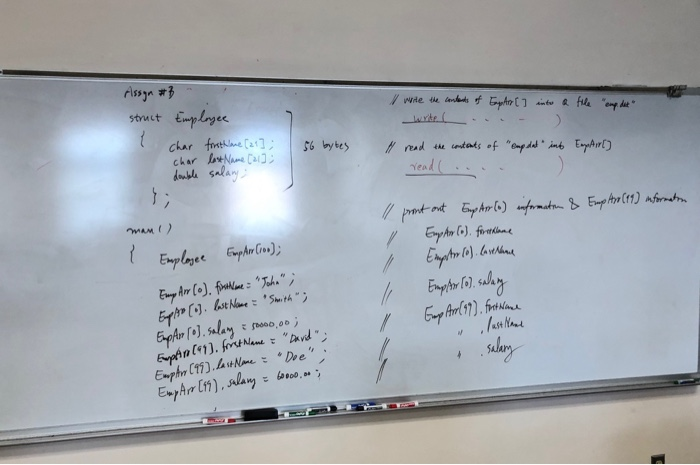 Assgn #3
struct Employee
{
char firstName[21];
char lastName[21];
double salary;
56 bytes
};
main()
{
Employee EmpArr[100];
EmpArr[0].firstName = "John";
EmpArr[0].lastName = "Smith";
EmpArr[0].salary = 50000.00;
EmpArr[99].firstName = "David";
EmpArr[99].lastName = "Doe";
EmpArr[99].salary = 60000.00;
// write the contents of EmpArr[] into a file "emp.dat"
write( . . . . )
// read the contents of "emp.dat" into EmpArr[]
read( . . . . )
// print out EmpArr[0] information & EmpArr[99] information
// EmpArr[0].firstName
// EmpArr[0].lastName
// EmpArr[0].salary
// EmpArr[99].firstName
// " .lastName
// " .salary
//